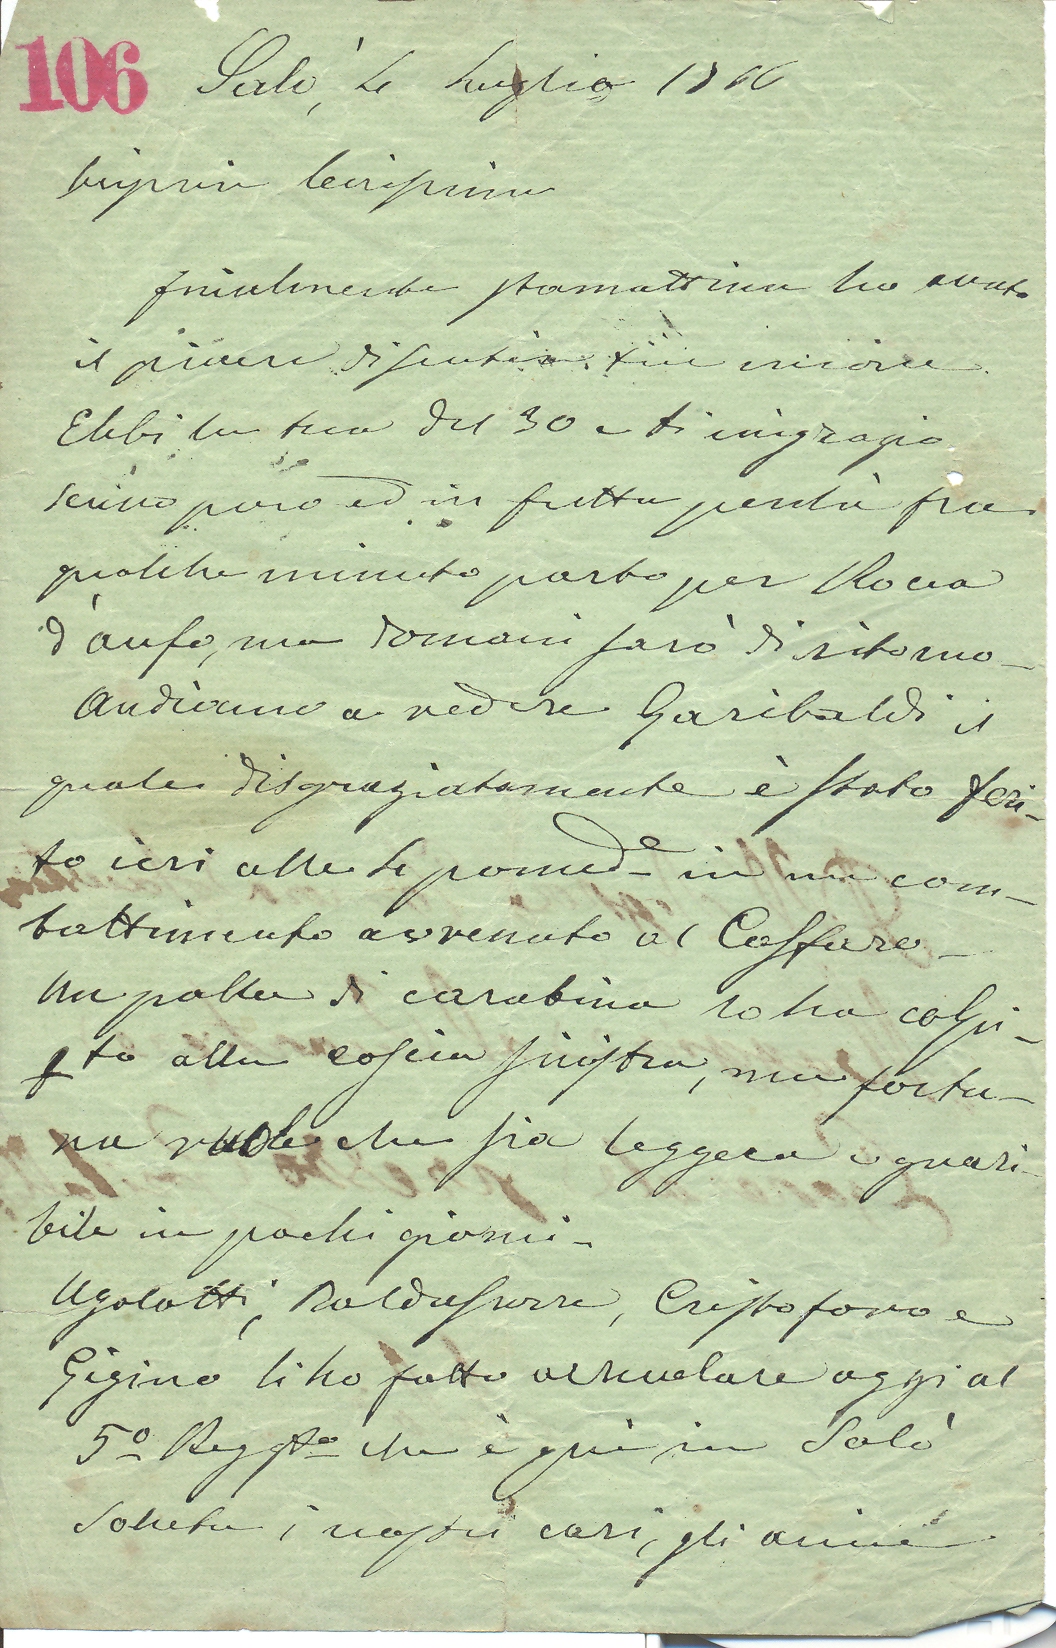 106
Salò, 4 Luglio 1866
Carissimo
finalmente stamattina ho avuto
il piacere di sentir tue nuove
Ebbi la tua del 30 e ti ringrazio
scrivo poco ed in fretta perchè fra
qualche minuto parto per Rocca
d'anfo, ma domani sarò di ritorno_
Andiamo a vedere Garibaldi il
quale disgraziatamente è stato feri_
to ieri alle 4 pomed_e in un com_
battimento avvenuto al Caffaro_
Una palla di carabina lo ha colpi_
to alla coscia sinistra, ma fortu_
na vuole che sia leggera e guari_
bile in pochi giorni_
Ugolotti, Baldassarre, Cristoforo e
Gigino li ho fatto arruolare oggi al
5º Reggto che è quì in Salò
Saluta i nostri cari, gli amici